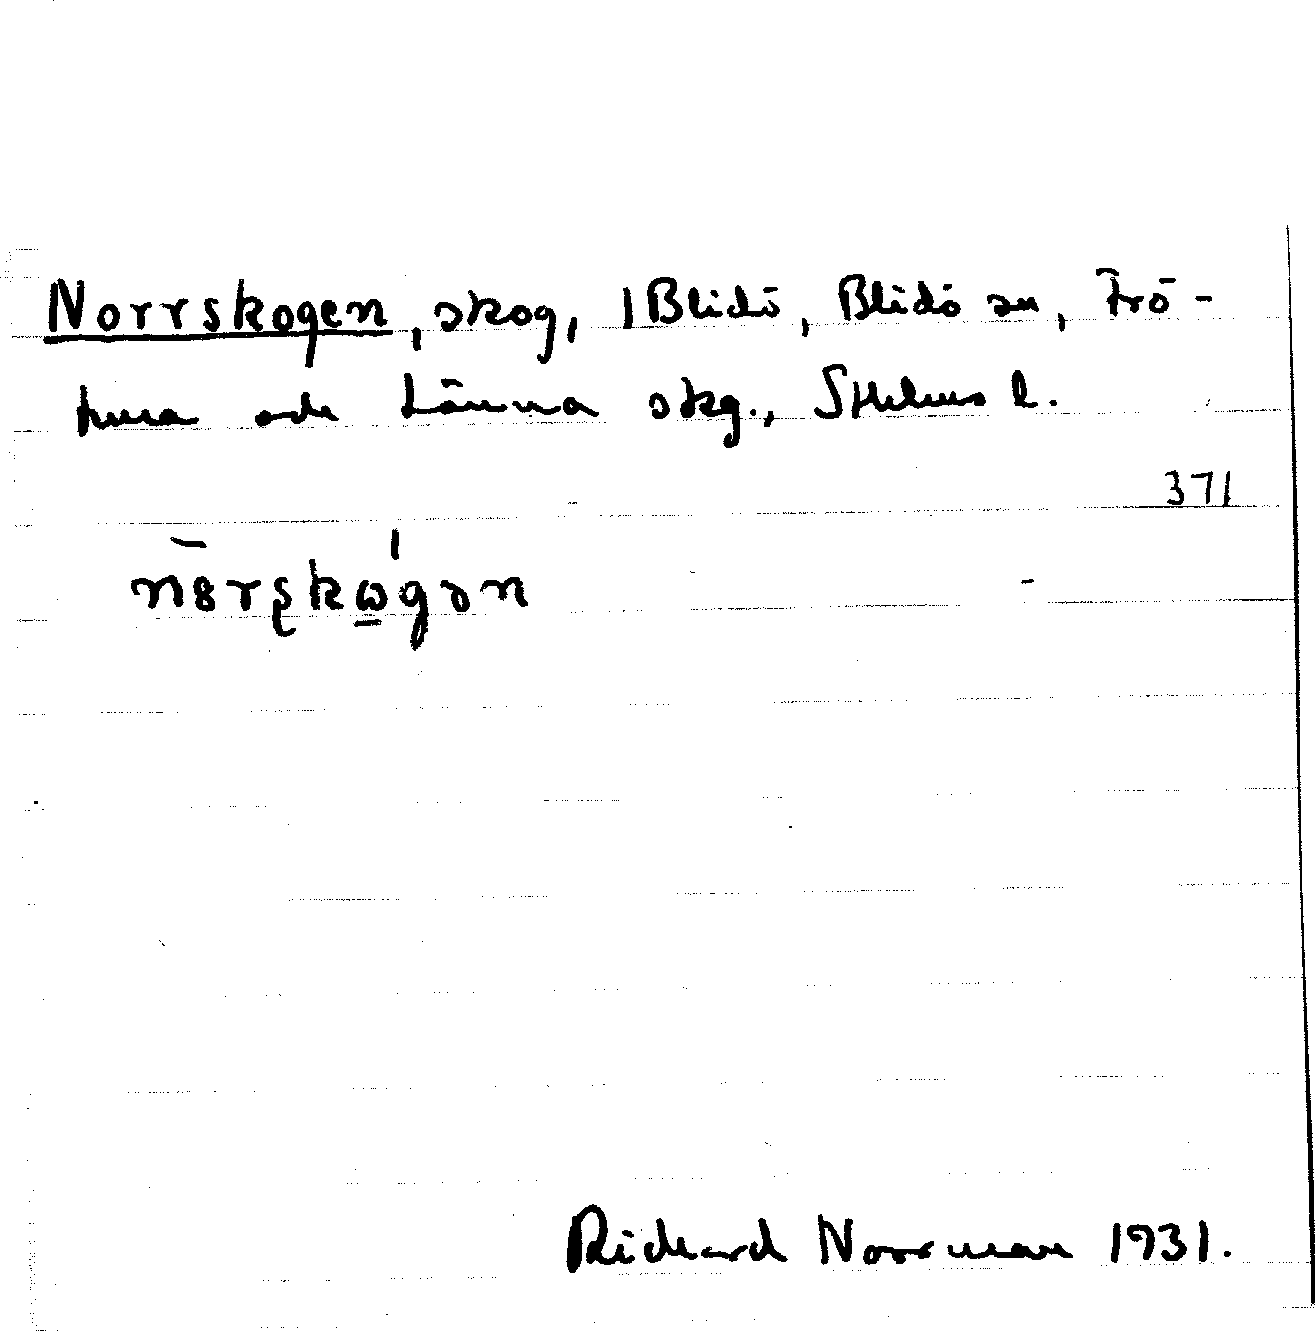 Norrskogen, skog, 1 Blidö, Blidö sn, Frö-
tuna och Länna skg., Sthlms l.
371
Richard Norrman 1931.